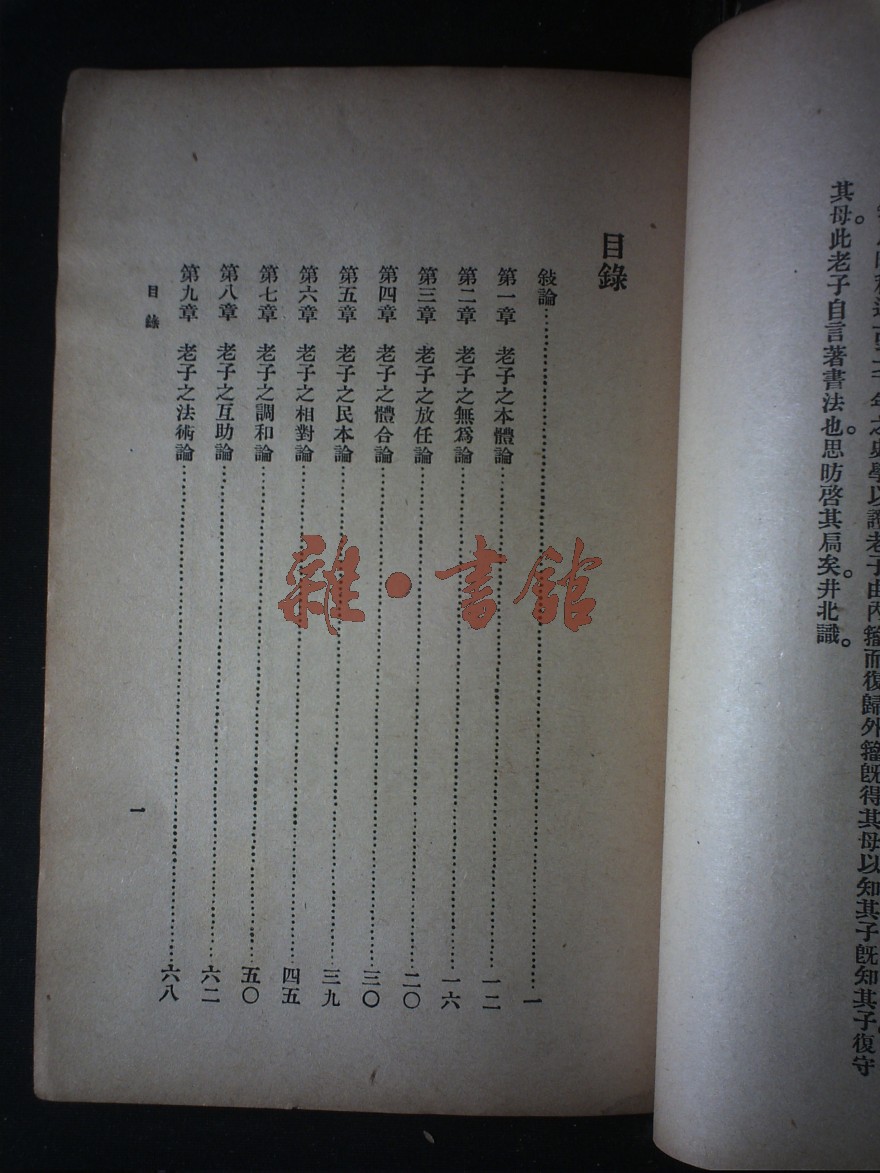 年之史學以證老子由內籀而復歸外籀旣得其母以知其子旣知其子復守
其母。此老子自言著書法也。思昉啓其局矣。井北識。
目錄
敍論⋯⋯⋯⋯一
第一章 老子之本體論⋯⋯⋯⋯一二
第二章 老子之無爲論⋯⋯⋯⋯一六
第三章 老子之放任論⋯⋯⋯⋯二〇
第四章 老子之體合論⋯⋯⋯⋯三〇
第五章 老子之民本論⋯⋯⋯⋯三九
第六章 老子之相對論⋯⋯⋯⋯四五
第七章 老子之調和論⋯⋯⋯⋯五〇
第八章 老子之互助論⋯⋯⋯⋯六二
第九章 老子之法術論⋯⋯⋯⋯六八
目錄
一
雜·書館